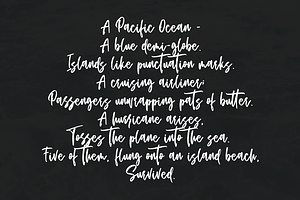 A Pacific Ocean -
A blue demi-globe.
Islands like punctuation marks.
A cruising airliner:
Passengers unwrapping pats of butter.
A hurricane arises,
Tosses the plane into the sea.
Five of them, flung onto an island beach,
Survived.